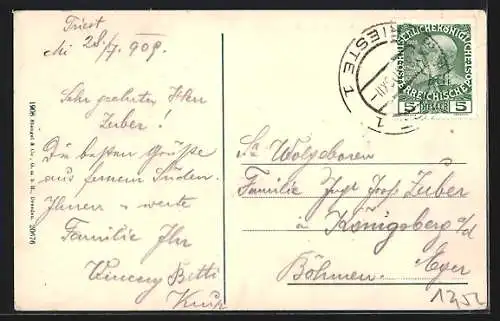 Triest
28./7. 909.
Sehr geehrter Herr
Zuber!
Die besten Grüße
aus fernem Süden.
Ihnen u. werte
Familie Ihr
Vincenz Betti
TRIESTE 1
1
KAISERLICHE KÖNIGLICHE
ÖSTERREICHISCHE POST
5 HELLER 5
Sr Wolgeboren
Familie Josef Zuber
in Königsberg a/d
Böhmen. Eger
1908 Stengel & Co., G. m. b. H., Dresden.